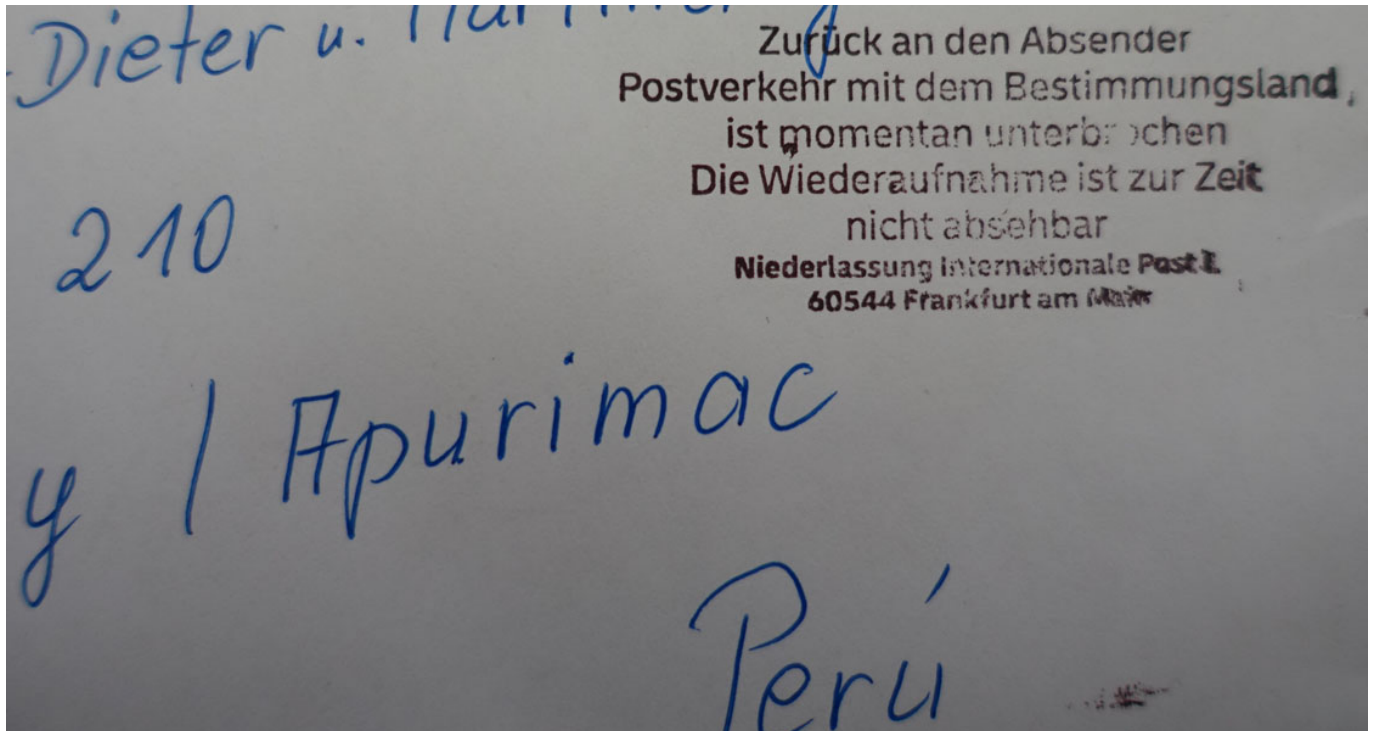 Dieter u.
Zurück an den Absender
Postverkehr mit dem Bestimmungsland,
ist momentan unterbrochen
Die Wiederaufnahme ist zur Zeit
nicht absehbar
Niederlassung Internationale Post
60544 Frankfurt am Main
210
y / Apurimac
Perú